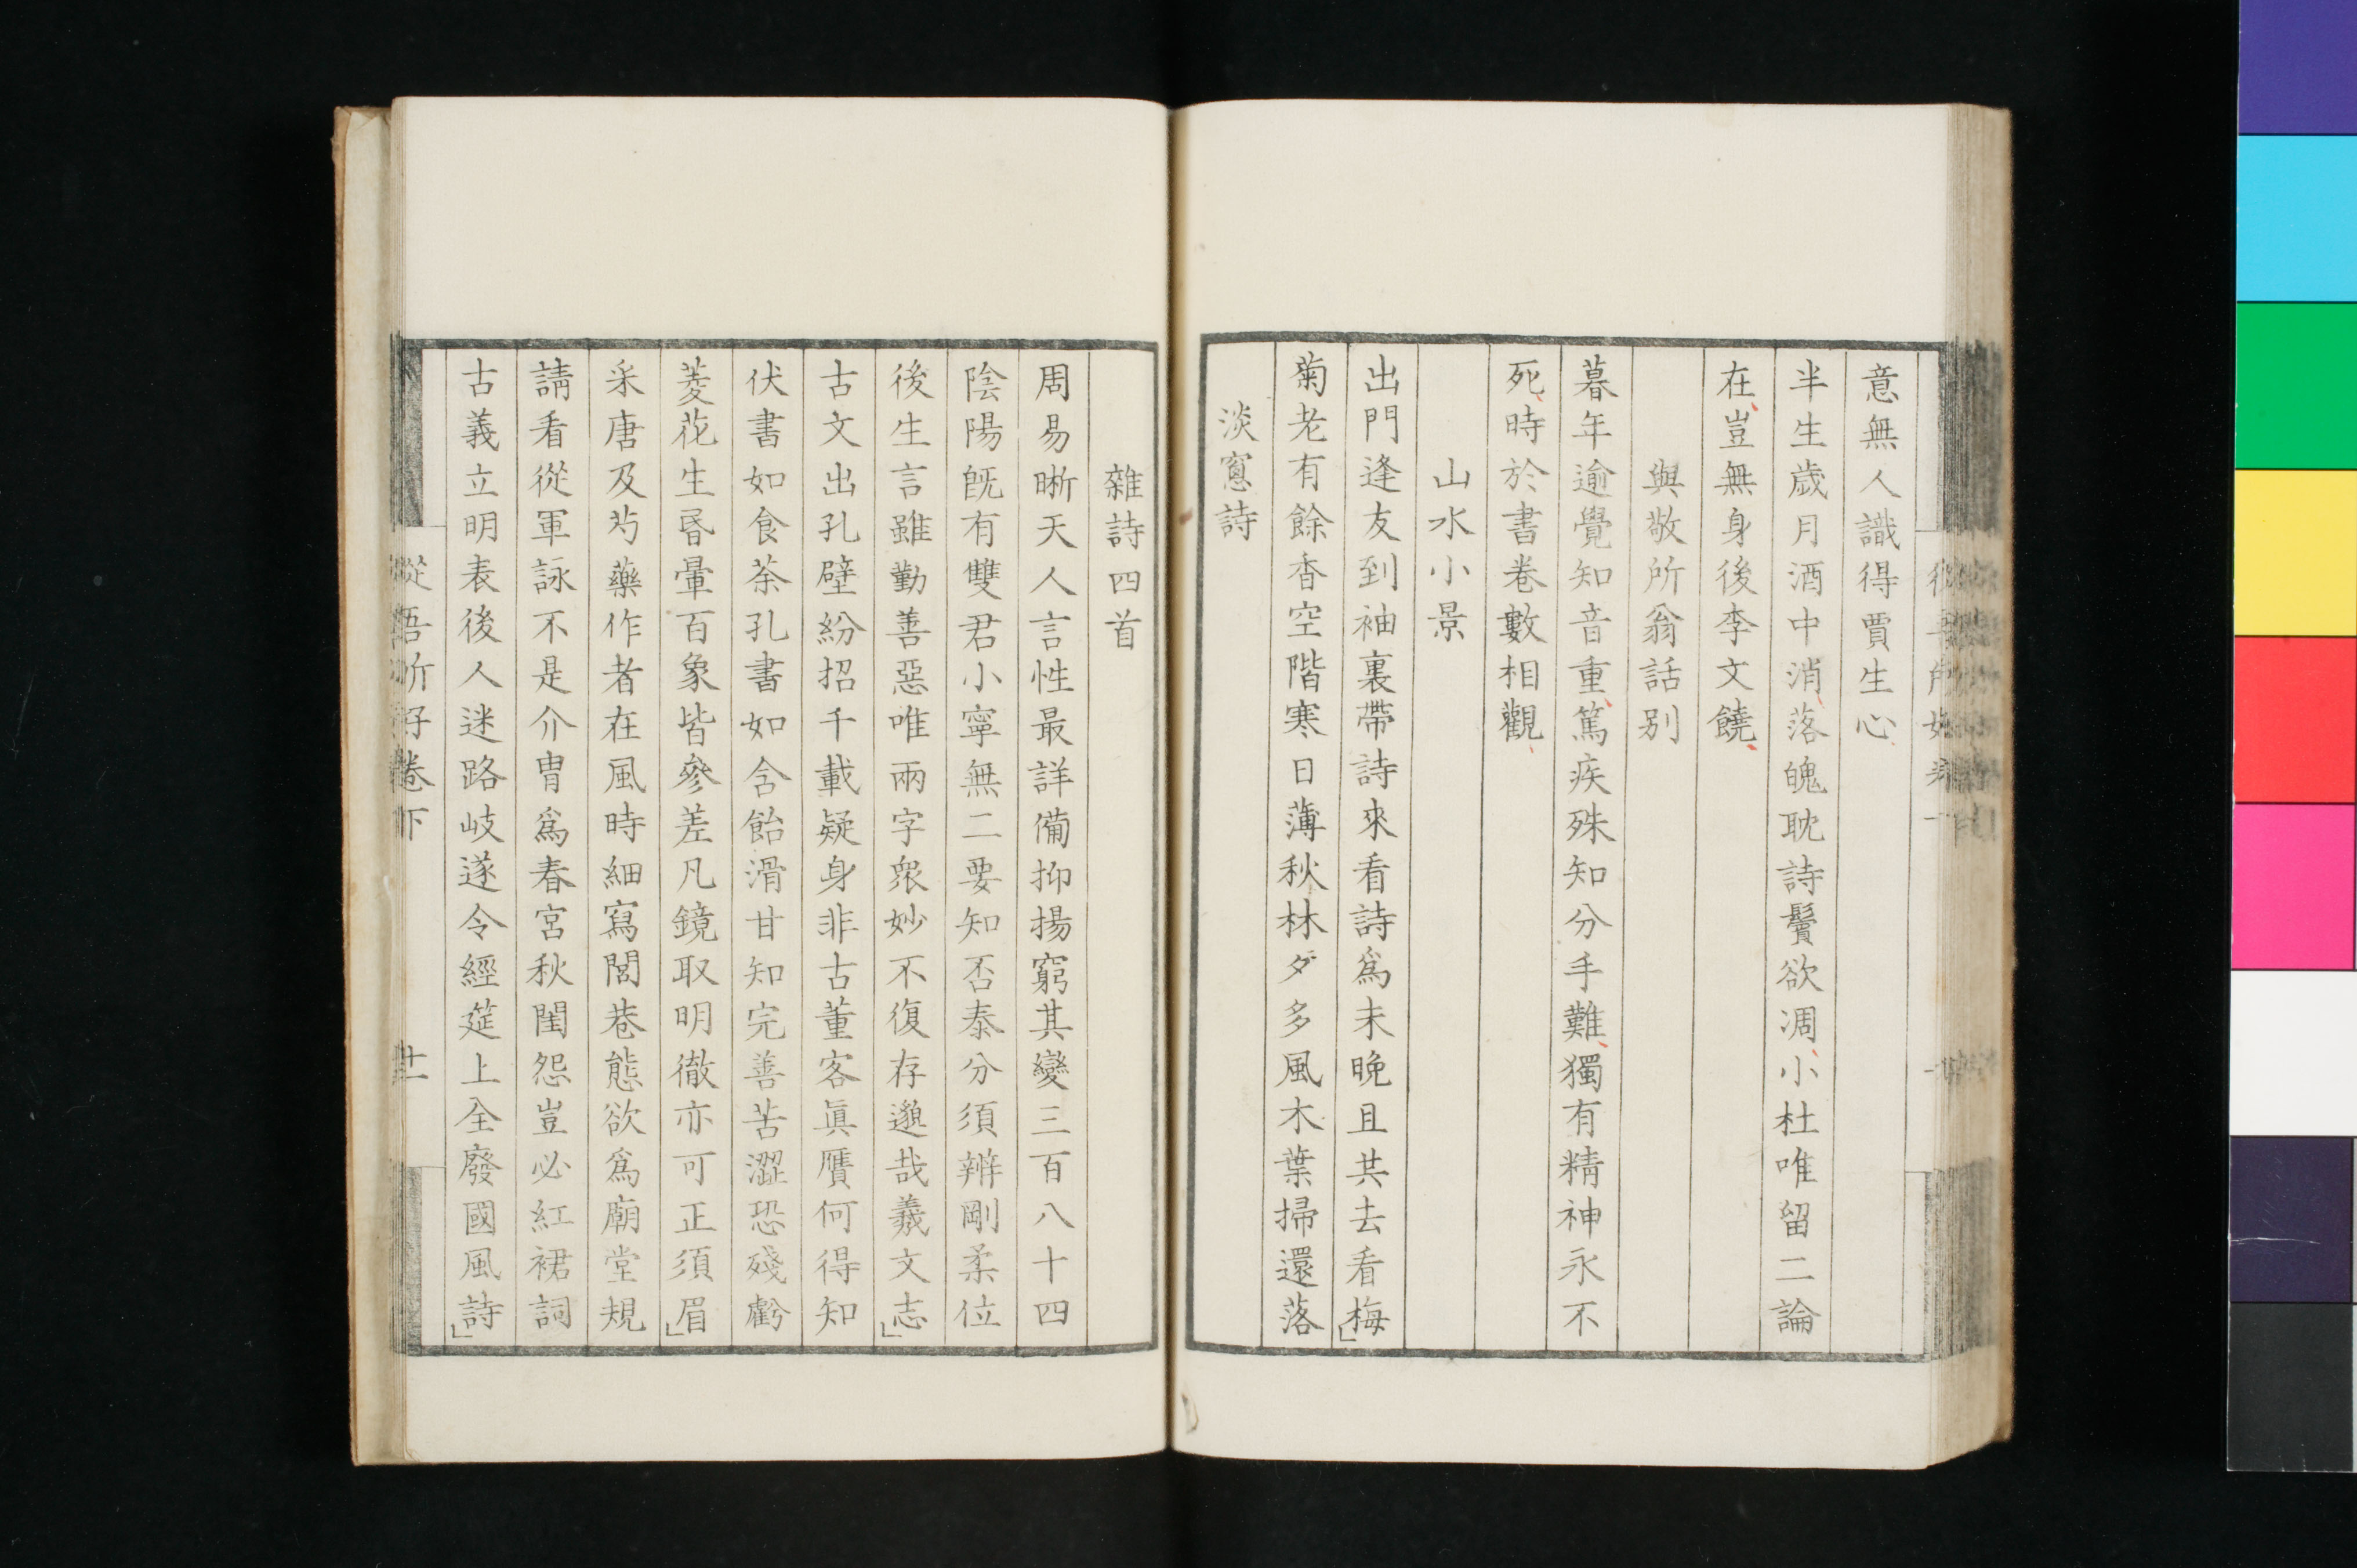 意無人識得賈生心
半生歳月酒中消落魄耽詩鬢欲凋小杜唯留二論
在豈無身後李文饒
與敬所翁話別
暮年逾覺知音重篤疾殊知分手難獨有精神永不
死時於書卷數相觀
山水小景
出門逢友到袖裏帶詩來看詩爲未晚且共去看梅」
菊老有餘香空階寒日薄秋林夕多風木葉掃還落
淡窻詩
雜詩四首
周易晰天人言性最詳備抑揚窮其變三百八十四
陰陽既有雙君小寧無二要知否泰分須辨剛柔位
後生言雖勤善惡唯兩字衆妙不復存邈哉羲文志」
古文出孔壁紛招千載疑身非古董客眞贋何得知
伏書如食荼孔書如含飴滑甘知完善苦澀恐殘虧
菱花生昏暈百象皆參差凡鏡取明徹亦可正須眉」
采唐及芍藥作者在風時細寫閭巷態欲爲廟堂規
請看從軍詠不是介冑爲春宮秋閨怨豈必紅裙詞
古義立明表後人迷路岐遂令經筵上全廢國風詩」
從吾所好卷下